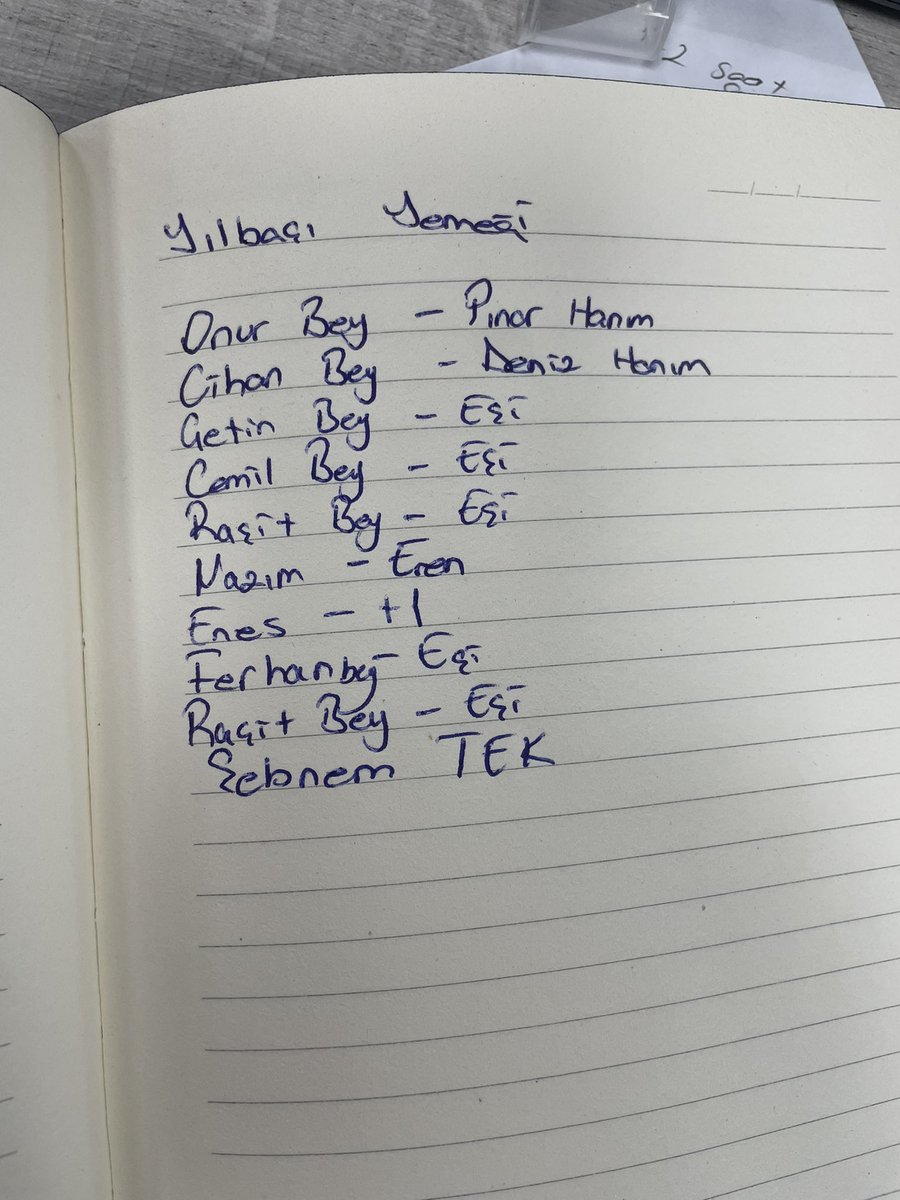 500 x
Yılbaşı Yemeği
Onur Bey - Pınar Hanım
Cihan Bey - Deniz Hanım
Çetin Bey - Eşi
Cemil Bey - Eşi
Raşit Bey - Eşi
Nazım - Eren
Enes - +1
Ferhan bey - Eşi
Raşit Bey - Eşi
Şebnem TEK